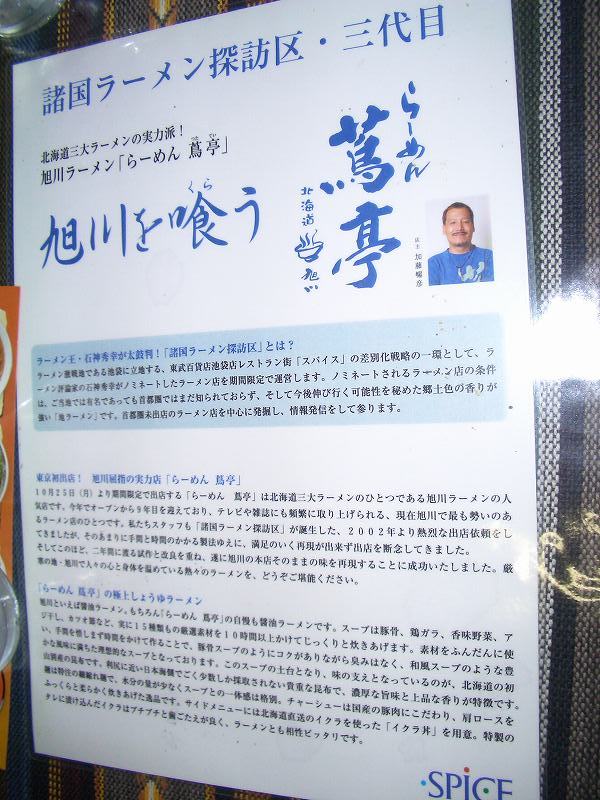 諸国ラーメン探訪区・三代目
北海道三大ラーメンの実力派！
旭川ラーメン「らーめん 蔦亭」
つた てい
旭川を喰う
くら
らーめん
蔦亭
北海道
旭川
店主 加藤暢彦
ラーメン王・石神秀幸が太鼓判！「諸国ラーメン探訪区」とは？
ラーメン激戦地である池袋に立地する、東武百貨店池袋店レストラン街「スパイス」の差別化戦略の一環として、ラ
ーメン評論家の石神秀幸がノミネートしたラーメン店を期間限定で運営します。ノミネートされるラーメン店の条件
は、ご当地では有名であっても首都圏ではまだ知られておらず、そして今後伸び行く可能性を秘めた郷土色の香りが
強い「地ラーメン」です。首都圏未出店のラーメン店を中心に発掘し、情報発信をして参ります。
東京初出店！ 旭川屈指の実力店「らーめん 蔦亭」
10月25日（月）より期間限定で出店する「らーめん 蔦亭」は北海道三大ラーメンのひとつである旭川ラーメンの人
気店です。今年でオープンから9年目を迎えており、テレビや雑誌にも頻繁に取り上げられる、現在旭川で最も勢いのあ
るラーメン店のひとつです。私たちスタッフも「諸国ラーメン探訪区」が誕生した、2002年より熱烈な出店依頼をし
てきましたが、そのあまりに手間と時間のかかる製法ゆえに、満足のいく再現が出来ず出店を断念してきました。
そしてこのほど、二年間に渡る試作と改良を重ね、遂に旭川の本店そのままの味を再現することに成功いたしました。厳
寒の地・旭川で人々の心と身体を温めている熱々のラーメンを、どうぞご堪能ください。
「らーめん 蔦亭」の極上しょうゆラーメン
旭川といえば醤油ラーメン。もちろん「らーめん 蔦亭」の自慢も醤油ラーメンです。スープは豚骨、鶏ガラ、香味野菜、ア
ジ干し、カツオ節など、実に15種類もの厳選素材を10時間以上かけてじっくりと炊きあげます。素材をふんだんに使
い、手間を惜しまず時間をかけて作ることで、豚骨スープのようにコクがありながら臭みはなく、和風スープのような豊
かな風味に満ちた理想的なスープとなっております。このスープの土台となり、味の支えとなっているのが、北海道の初
山別産の昆布です。利尻に近い日本海側でごく少数しか採取されない貴重な昆布で、濃厚な旨味と上品な香りが特徴です。
麺は特注の細縮れ麺で、水分の量が少なくスープとの一体感は格別。チャーシューは国産の豚肉にこだわり、肩ロースを
ふっくらと柔らかく炊きあげた逸品です。サイドメニューには北海道直送のイクラを使った「イクラ丼」を用意。特製の
タレに漬け込んだイクラはプチプチと歯ごたえが良く、ラーメンとも相性ピッタリです。
SPICE